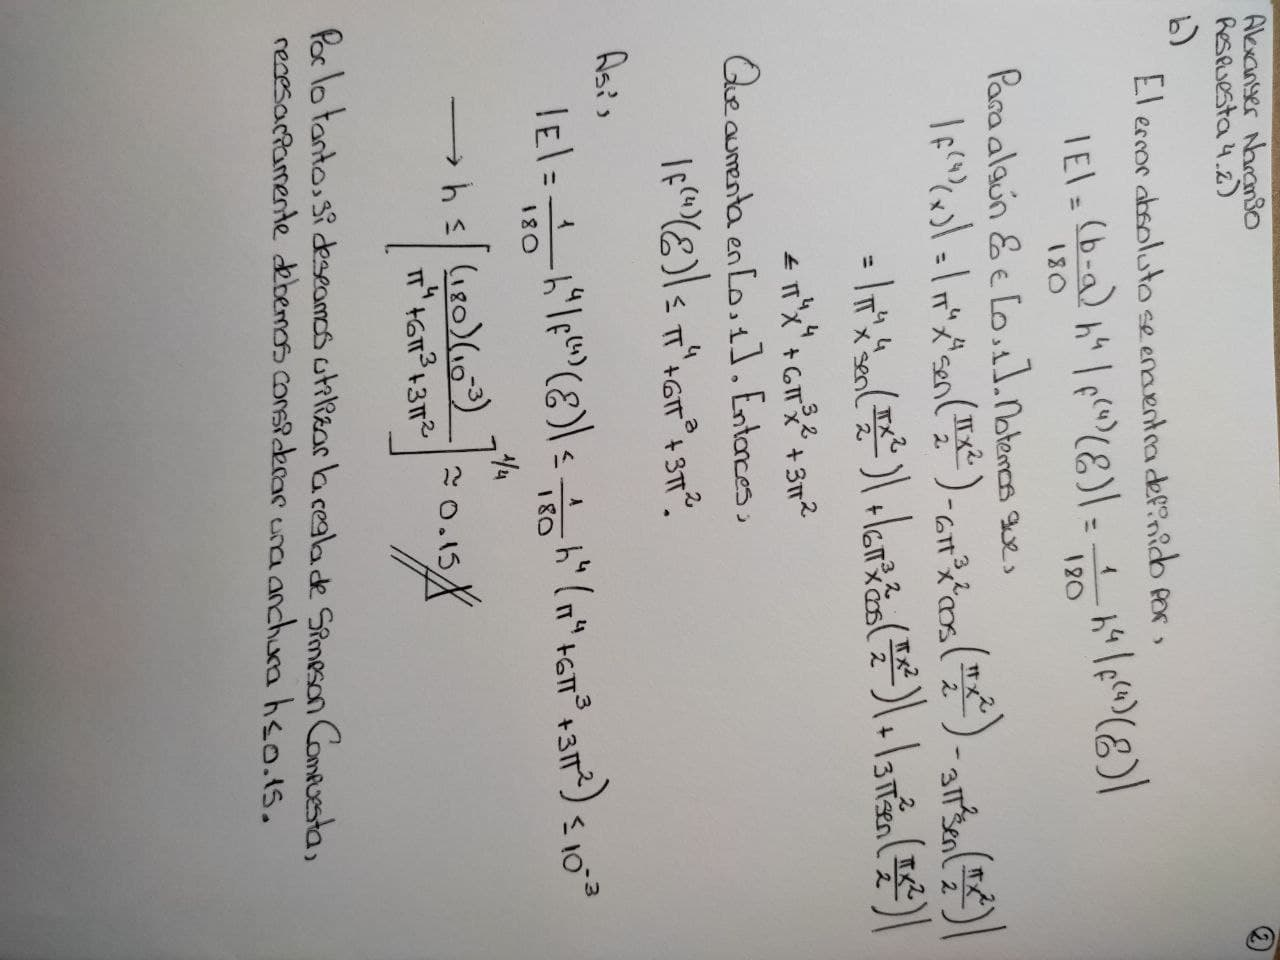 Alexanyer Naranjo
Respuesta 4.2)
②
b)
El error absoluto se encuentra definido por,
|E| = (b-a)/180 h⁴ |f⁽⁴⁾(ξ)| = 1/180 h⁴ |f⁽⁴⁾(ξ)|
Para algún ξ ∈ [0,1]. Notemos que,
|f⁽⁴⁾(x)| = |π⁴x⁴ sen(πx²/2) - 6π³x² cos(πx²/2) - 3π² sen(πx²/2)|
= |π⁴x⁴ sen(πx²/2)| + |6π³x² cos(πx²/2)| + |3π² sen(πx²/2)|
≤ π⁴x⁴ + 6π³x² + 3π²
Que aumenta en [0,1]. Entonces,
|f⁽⁴⁾(ξ)| ≤ π⁴ + 6π³ + 3π².
Así,
|E| = 1/180 h⁴ |f⁽⁴⁾(ξ)| ≤ 1/180 h⁴ (π⁴ + 6π³ + 3π²) ≤ 10⁻³
→ h ≤ [(180)(10⁻³)/π⁴ + 6π³ + 3π²]^1/4 ≈ 0.15
Por lo tanto, si deseamos utilizar la regla de Simpson Compuesta,
necesariamente debemos considerar una anchura h ≤ 0.15.